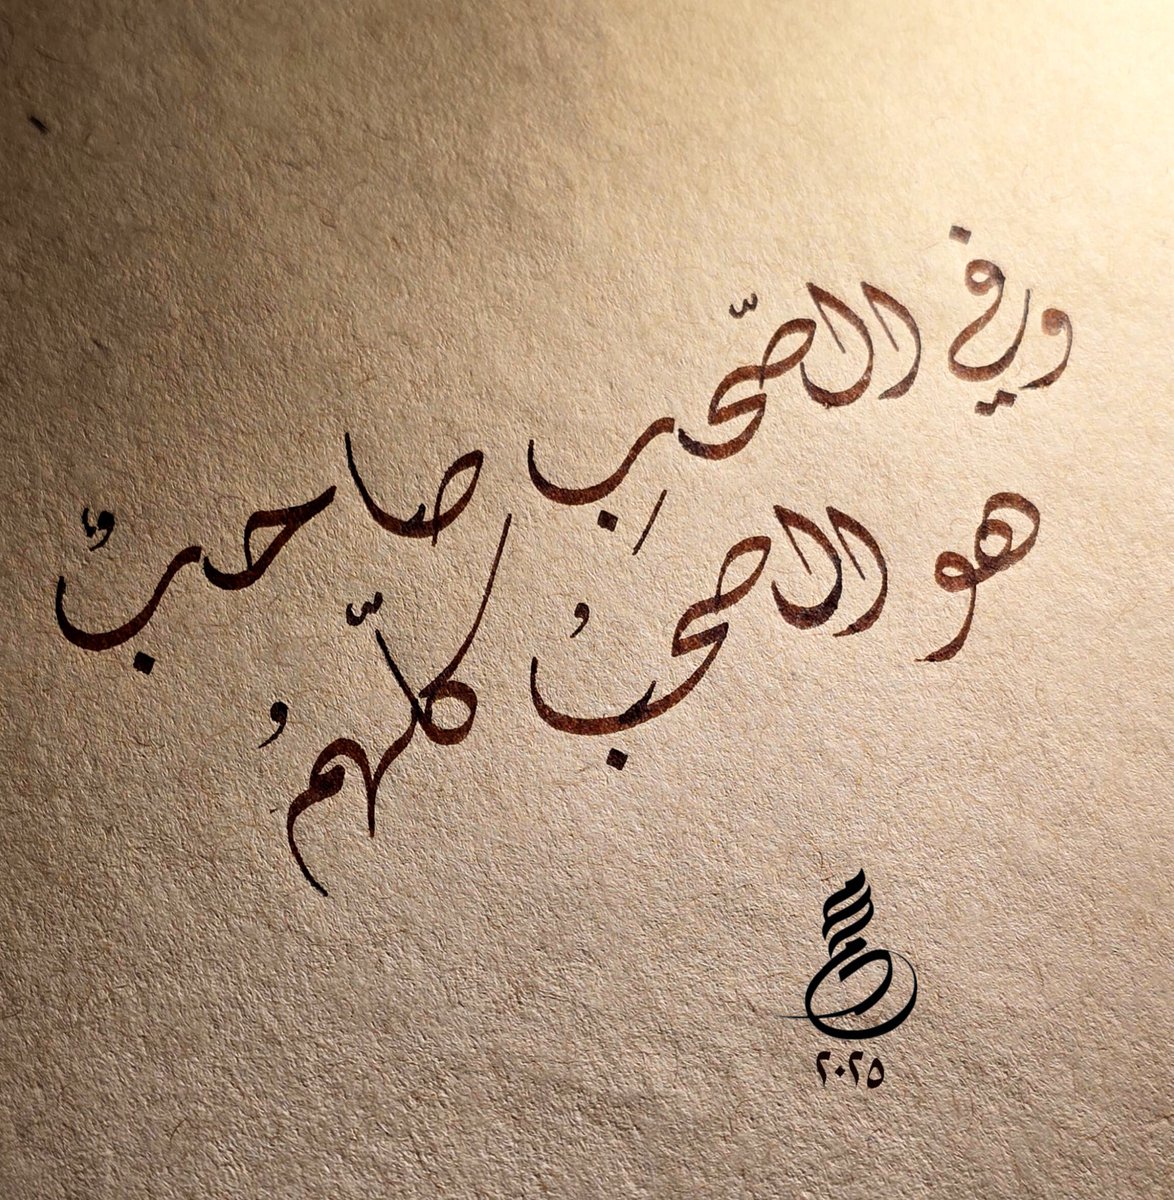 وفي الصّحبِ صاحبٌ
هو الصحبُ كلّهمُ
٢٠٢٥